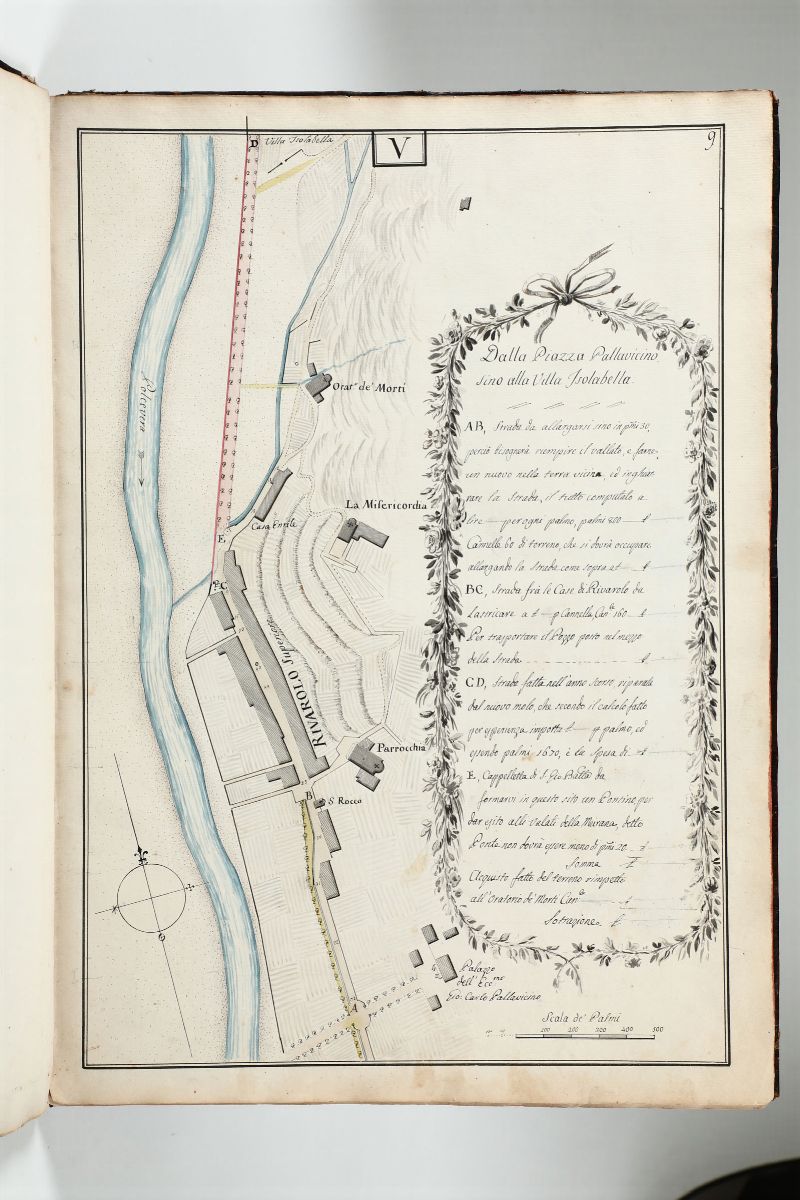 V
9
D Villa Isolabella
Polcevera
Orat.º de' Morti
La Misericordia
Casa Enrile
E
C
RIVAROLO Superiore
Parrocchia
B
S. Rocco
A
Palazzo
dell' Ecc.mo
Gio. Carlo Pallavicino
Scala de' Palmi
100 200 300 400 500
Dalla Piazza Pallavicino
sino alla Villa Isolabella.
AB, Strada da allargarsi sino in pmi 30,
perciò bisognerà riempire il vallato, e farne
un nuovo nella terra vicina, ed inghiar
rare la Strada, il tutto computato a
lire — per ogni palmo, palmi 820 — £
Cannelle 60 di terreno, che si dovrà occupare
allargando la Strada come sopra a £ — £
BC, Strada frà le Case di Rivarolo da
Lastricare a £ — p Cannella, Can.e 160 — £
Per trasportare il Pozzo posto nel mezzo
della Strada . . . . . . . £
CD, Strada fatta nell'anno scorso, riparata
dal nuovo molo, che secondo il calcolo fatto
per esperienza importa £ — p palmo, ed
essendo palmi 1670, è la spesa di — £
E, Cappelletta di S. Gio Batta da
formarvi in questo sito un Pontino per
dar esito alli Valati della Murana, detto
Ponte non dovrà essere meno di pmi 20 — £
Somma £
Acquisto fatto del terreno rimpetto
all'Oratorio de' Morti Can.e — £
Sotrazione £